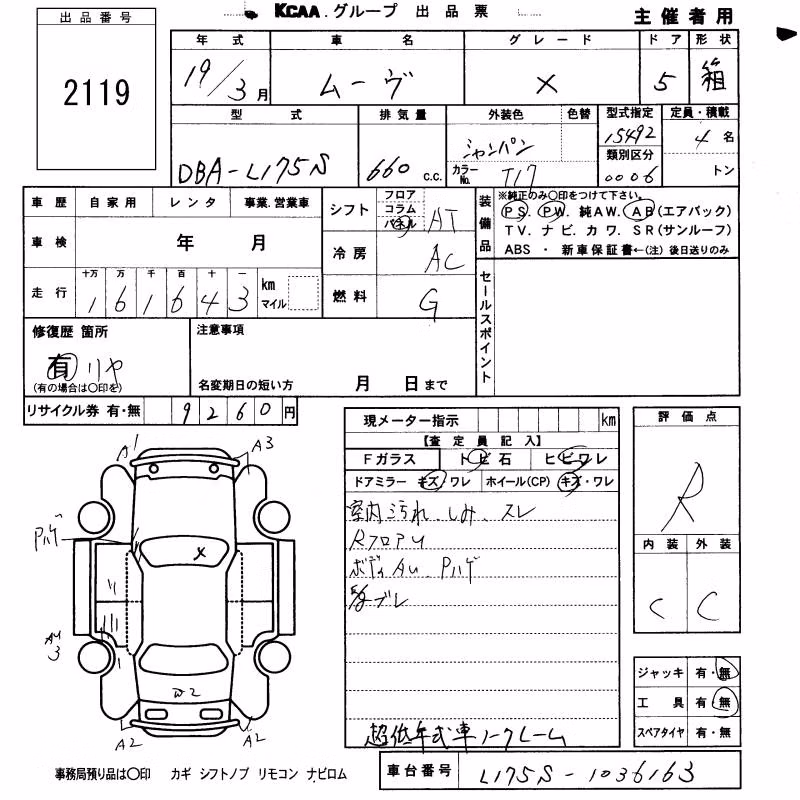 KCAA.グループ 出品票
主催者用
出品番号
2119
年式 車名 グレード ドア 形状
19/3月 ムーヴ X 5 箱
型式 排気量 外装色 色替 型式指定 定員・積載
DBA-L175S 660 c.c. シャンパン カラーNo. T17 15492 4名
類別区分 0006 トン
車歴 自家用 レンタ 事業.営業車
シフト フロア コラム パネル AT
装備品 ※純正のみ〇印をつけて下さい。
PS. PW. 純AW. AB(エアバック)
TV. ナビ. カワ. SR(サンルーフ)
ABS ・ 新車保証書←(注) 後日送りのみ
車検 年 月
冷房 AC
走行 十万 万 千 百 十 一
161643 km マイル
燃料 G
セールスポイント
修復歴 箇所
有 リヤ
(有の場合は〇印を)
注意事項
名変期日の短い方 月 日まで
リサイクル券 有・無 9260円
現メーター指示 km
【査定員記入】
Fガラス トビ石 ヒビワレ
ドアミラー キズ・ワレ ホイール(CP) キズ・ワレ
室内汚れ.しみ.スレ
RフロアU
ボディAU.Pハゲ
超低年式車ノークレーム
評価点
R
内装 外装
C C
ジャッキ 有・無
工具 有・無
スペアタイヤ 有・無
A1
A3
Pハゲ
X
AU
3
W2
A2
A2
事務局預り品は〇印 カギ シフトノブ リモコン ナビロム
車台番号 L175S-1036163